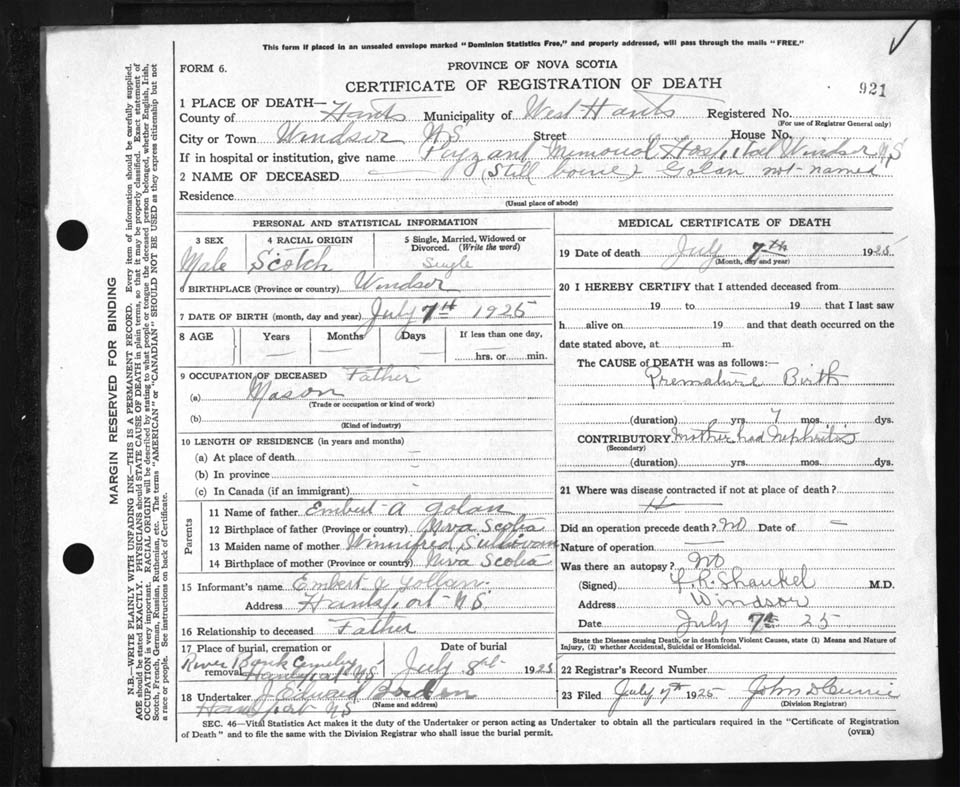 This form if placed in an unsealed envelope marked "Dominion Statistics Free," and properly addressed, will pass through the mails "FREE."
FORM 6.
PROVINCE OF NOVA SCOTIA
CERTIFICATE OF REGISTRATION OF DEATH
921
1 PLACE OF DEATH—
County of Hants Municipality of West Hants Registered No.
(For use of Registrar General only)
City or Town Windsor N.S Street House No.
If in hospital or institution, give name Payzant Memorial Hospital Windsor N.S
2 NAME OF DECEASED (Still borne) Golan not-named
Residence
(Usual place of abode)
PERSONAL AND STATISTICAL INFORMATION
3 SEX 4 RACIAL ORIGIN 5 Single, Married, Widowed or Divorced. (Write the word)
Male Scotch Single
6 BIRTHPLACE (Province or country) Windsor
7 DATE OF BIRTH (month, day and year) July 7th 1925
8 AGE Years Months Days If less than one day,
— — — hrs. or min.
9 OCCUPATION OF DECEASED Father
(a) Mason
(Trade or occupation or kind of work)
(b)
(Kind of industry)
10 LENGTH OF RESIDENCE (in years and months)
(a) At place of death —
(b) In province —
(c) In Canada (if an immigrant) -
Parents
11 Name of father Embert A Golan
12 Birthplace of father (Province or country) Nova Scotia
13 Maiden name of mother Winnifred Sullivan
14 Birthplace of mother (Province or country) Nova Scotia
15 Informant's name Embert
Address Hantsport N.S.
16 Relationship to deceased Father
17 Place of burial, cremation or removal Date of burial
River Bank Cemetery
Hantsport N.S July 8th 1925
18 Undertaker J Edward Borden
(Name and address)
Hantsport N.S
MEDICAL CERTIFICATE OF DEATH
19 Date of death July 7th 1925
(Month, day and year)
20 I HEREBY CERTIFY that I attended deceased from
19 to 19 that I last saw
h alive on 19 and that death occurred on the
date stated above, at m.
The CAUSE OF DEATH was as follows:—
Premature Birth
(duration) yrs. 7 mos. dys.
CONTRIBUTORY Mother had Nephritis
(Secondary)
(duration) yrs. mos. dys.
21 Where was disease contracted if not at place of death?
Did an operation precede death? No Date of —
Nature of operation —
Was there an autopsy? No
(Signed) M.D.
Address Windsor
Date July 7th 25
State the Disease causing Death, or in death from Violent Causes, state (1) Means and Nature of Injury, (2) whether Accidental, Suicidal or Homicidal.
22 Registrar's Record Number
23 Filed July 7th 1925 John D Currie
(Division Registrar)
SEC. 46—Vital Statistics Act makes it the duty of the Undertaker or person acting as Undertaker to obtain all the particulars required in the "Certificate of Registration
of Death" and to file the same with the Division Registrar who shall issue the burial permit.
(OVER)
MARGIN RESERVED FOR BINDING
N.B.—WRITE PLAINLY WITH UNFADING INK—THIS IS A PERMANENT RECORD. Every item of information should be carefully supplied.
AGE should be stated EXACTLY. PHYSICIANS should STATE CAUSE OF DEATH in plain terms, so that it may be properly classified. Exact statement of
OCCUPATION is very important. RACIAL ORIGIN will be described by stating to what people or tongue the deceased person belonged, whether English, Irish,
Scotch, French, German, Russian, Ruthenian, etc. The terms "AMERICAN" or "CANADIAN" SHOULD NOT BE USED as they express citizenship but not
a race or people. See instructions on back of Certificate.